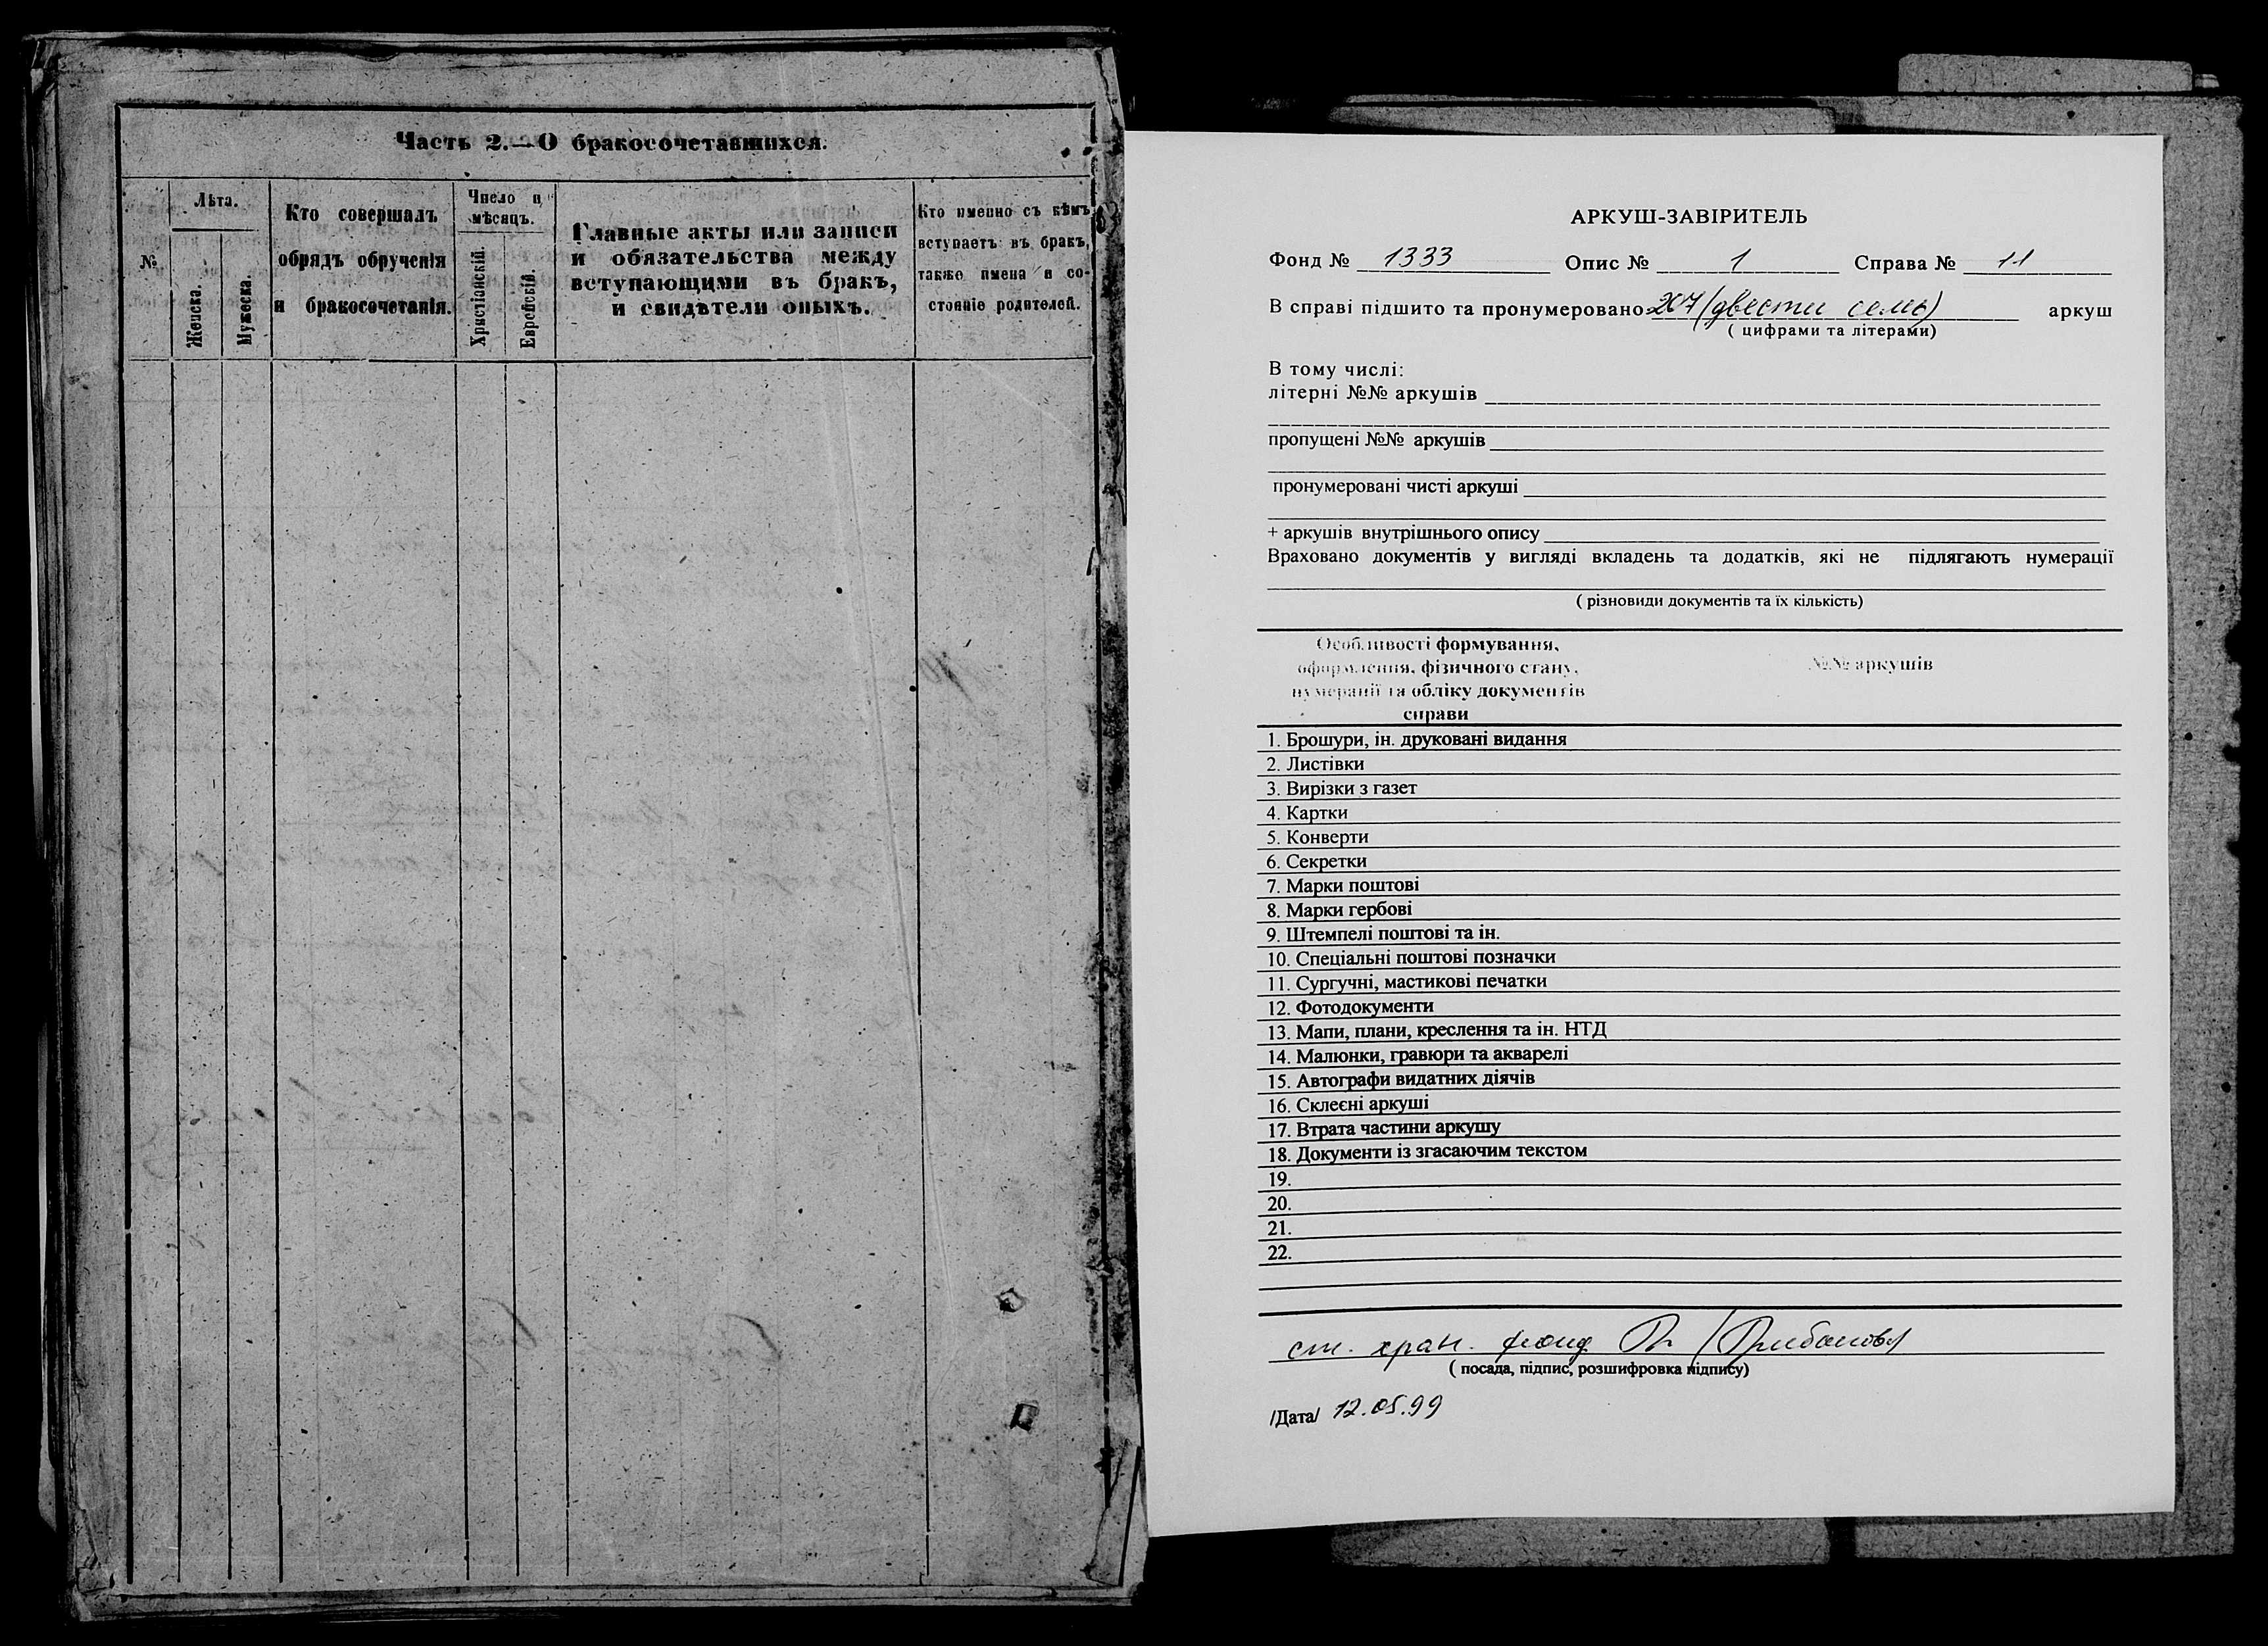 Часть 2.—О бракосочетавшихся.
№
Лѣта.
Женска.
Мужеска.
Кто совершалъ
обрядъ обрученія
и бракосочетанія.
Число и
мѣсяцъ.
Христіанскій.
Еврейскій.
Главные акты или записи
и обязательства между
вступающими въ бракъ,
и свидѣтели оныхъ.
Кто именно съ кѣмъ
вступаетъ въ бракъ,
также имена и со-
стояніе родителей.
АРКУШ-ЗАВІРИТЕЛЬ
Фонд № 1333 Опис № 1 Справа № 11
В справі підшито та пронумеровано 207 (двести семь) аркуш
( цифрами та літерами)
В тому числі:
літерні №№ аркушів
пропущені №№ аркушів
пронумеровані чисті аркуші
+ аркушів внутрішнього опису
Враховано документів у вигляді вкладень та додатків, які не підлягають нумерації
( різновиди документів та їх кількість)
Особливості формування,
оформлення, фізичного стану,
нумерації та обліку документів
справи
№№ аркушів
1. Брошури, ін. друковані видання
2. Листівки
3. Вирізки з газет
4. Картки
5. Конверти
6. Секретки
7. Марки поштові
8. Марки гербові
9. Штемпелі поштові та ін.
10. Спеціальні поштові позначки
11. Сургучні, мастикові печатки
12. Фотодокументи
13. Мапи, плани, креслення та ін. НТД
14. Малюнки, гравюри та акварелі
15. Автографи видатних діячів
16. Склеєні аркуші
17. Втрата частини аркушу
18. Документи із згасаючим текстом
19.
20.
21.
22.
ст. хран. фонд.
( посада, підпис, розшифровка підпису)
/Дата/ 12.05.99